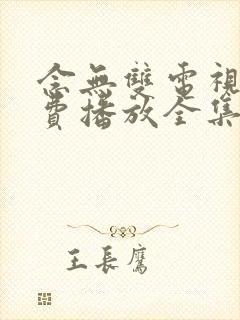 念無雙電視
費播放全集
王長鷹